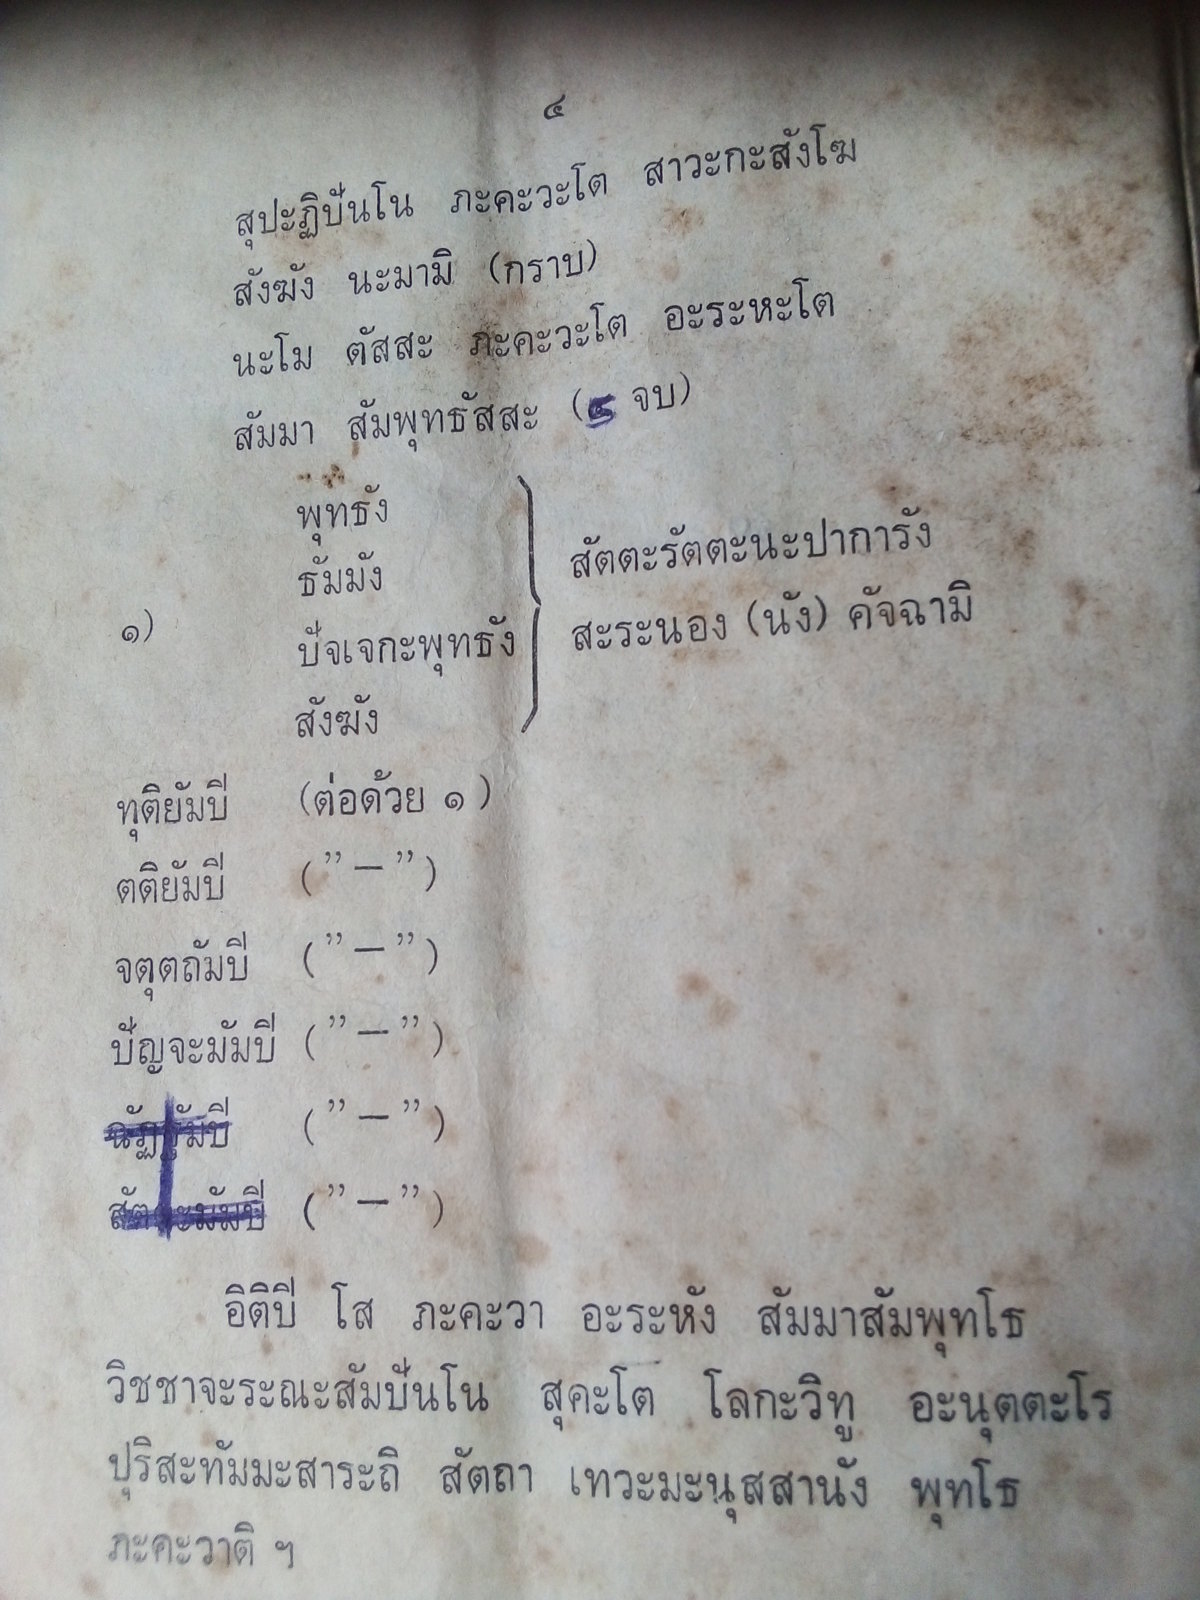 ๔
สุปะฏิปันโน ภะคะวะโต สาวะกะสังโฆ
สังฆัง นะมามิ (กราบ)
นะโม ตัสสะ ภะคะวะโต อะระหะโต
สัมมา สัมพุทธัสสะ (๕ จบ)
พุทธัง
ธัมมัง
๑)
ปัจเจกะพุทธัง
สังฆัง
สัตตะรัตตะนะปาการัง
สะระนอง (นัง) คัจฉามิ
ทุติยัมปี (ต่อด้วย ๑)
ตติยัมปี (" — ")
จตุตถัมปี (" — ")
ปัญจะมัมปี (" — ")
ฉัฏฐัมปี (" — ")
สัตตะมัมปี (" — ")
อิติปี โส ภะคะวา อะระหัง สัมมาสัมพุทโธ
วิชชาจะระณะสัมปันโน สุคะโต โลกะวิทู อะนุตตะโร
ปุริสะทัมมะสาระถิ สัตถา เทวะมะนุสสานัง พุทโธ
ภะคะวาติ ฯ